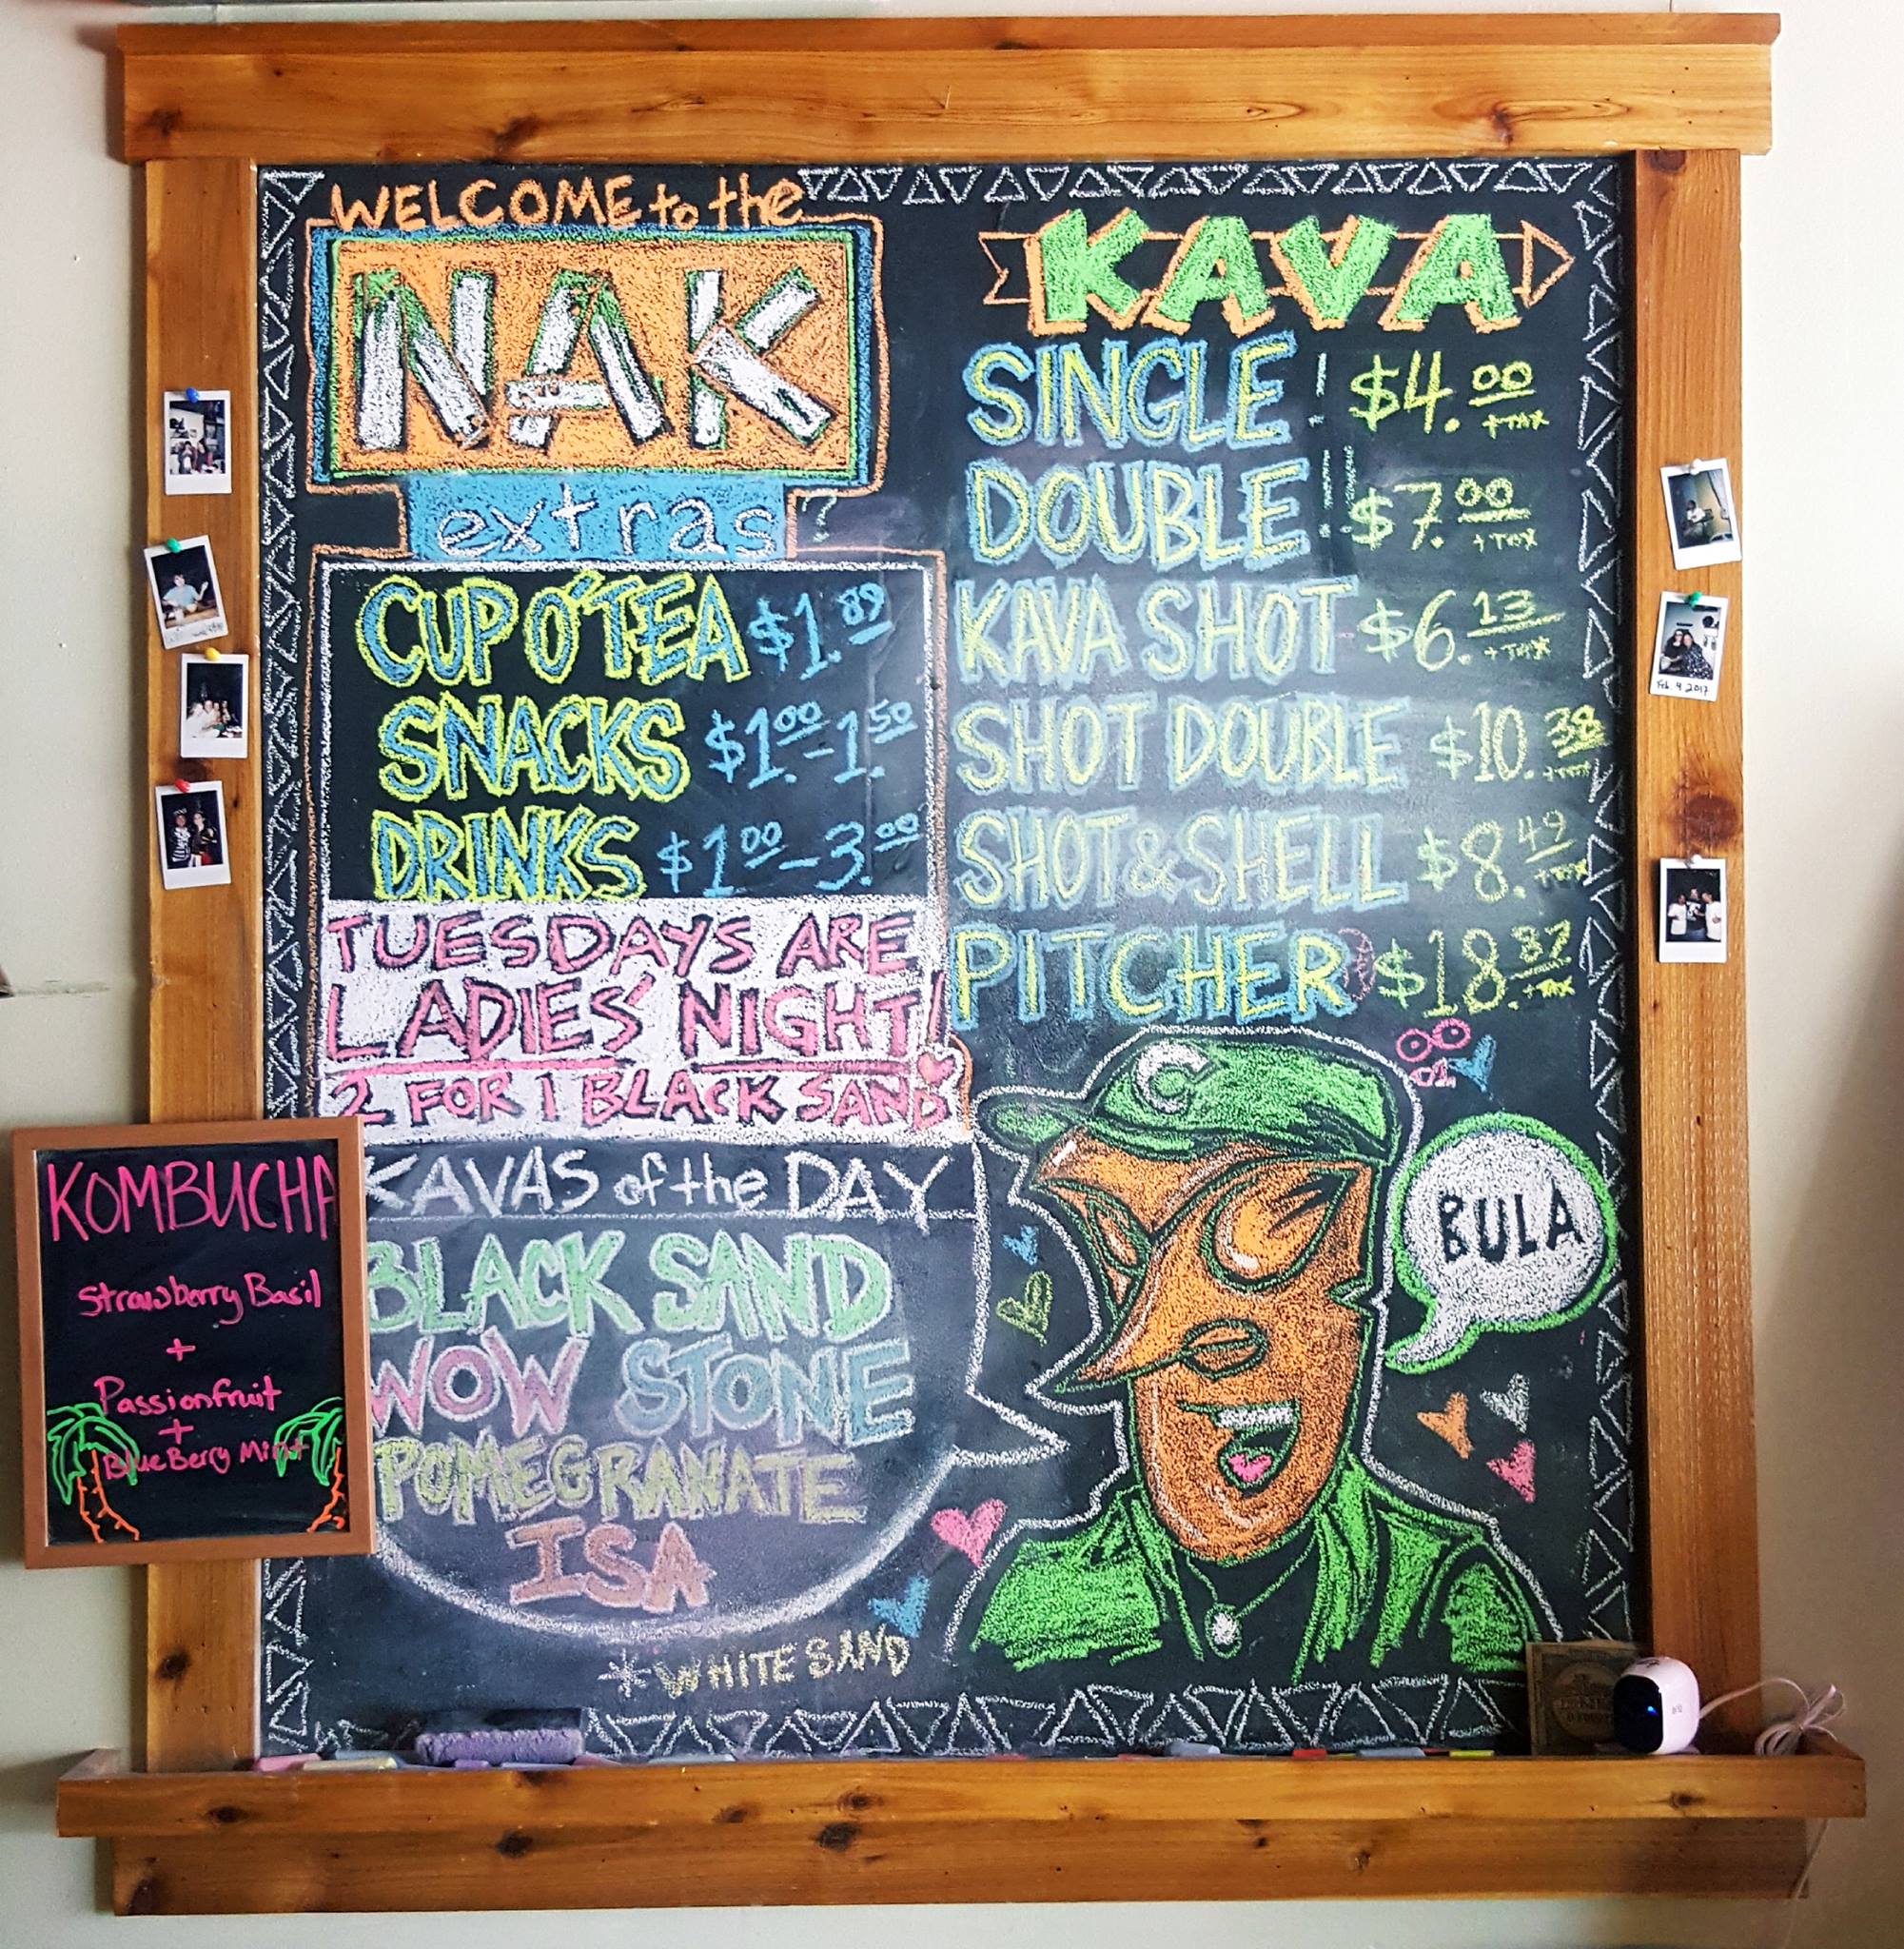 WELCOME to the
NAK
extras?
CUP O' TEA $1.89
SNACKS $1.00-1.50
DRINKS $1.00-3.00
TUESDAYS ARE
LADIES' NIGHT!
2 FOR 1 BLACK SAND
KAVAS of the DAY
BLACK SAND
WOW STONE
POMEGRANATE
ISA
*WHITE SAND
KAVA
SINGLE $4.00 +TAX
DOUBLE $7.00 +TAX
KAVA SHOT $6.13 +TAX
SHOT DOUBLE $10.38 +TAX
SHOT & SHELL $8.49 +TAX
PITCHER $18.87 +TAX
C
BULA
KOMBUCHA
Strawberry Basil
+
Passionfruit
+
BlueBerry Mint
Feb. 4 2017